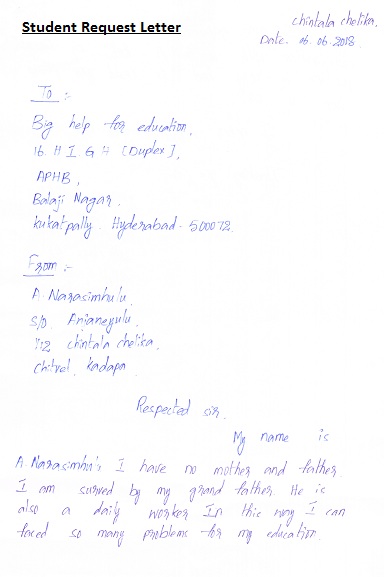 Student Request Letter
chintala chelika,
Date. 06.06.2018
To :-
Big help for education,
16. H I G H [Duplex],
APHB,
Balaji Nagar.
kukatpally. Hyderabad - 500072.
From :-
A. Narasimhulu
S/O. Anjaneyulu.
1-2 chintala chelika.
Chitvel. kadapa.
Respected sir.
My name is
A. Narasimhu's I have no mother and father.
I am surved by my grand father. He is
also a daily worker In this way I can
faced so many problems for my education.